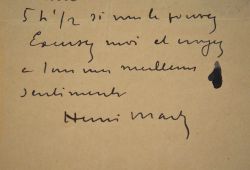 5 h 1/2 si vous le pouvez
Excusez moi et croyez
a tous mes meilleurs
sentiments
Henri Martin